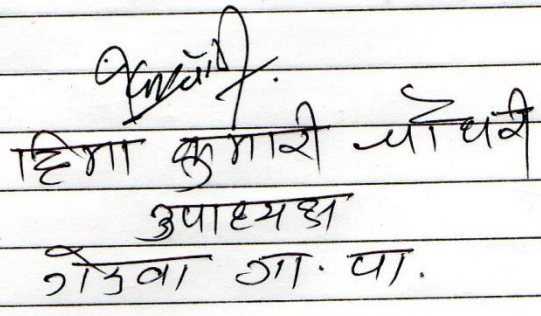 हिमा कुमारी चौधरी
उपाध्यक्ष
गेरुवा गा. पा.